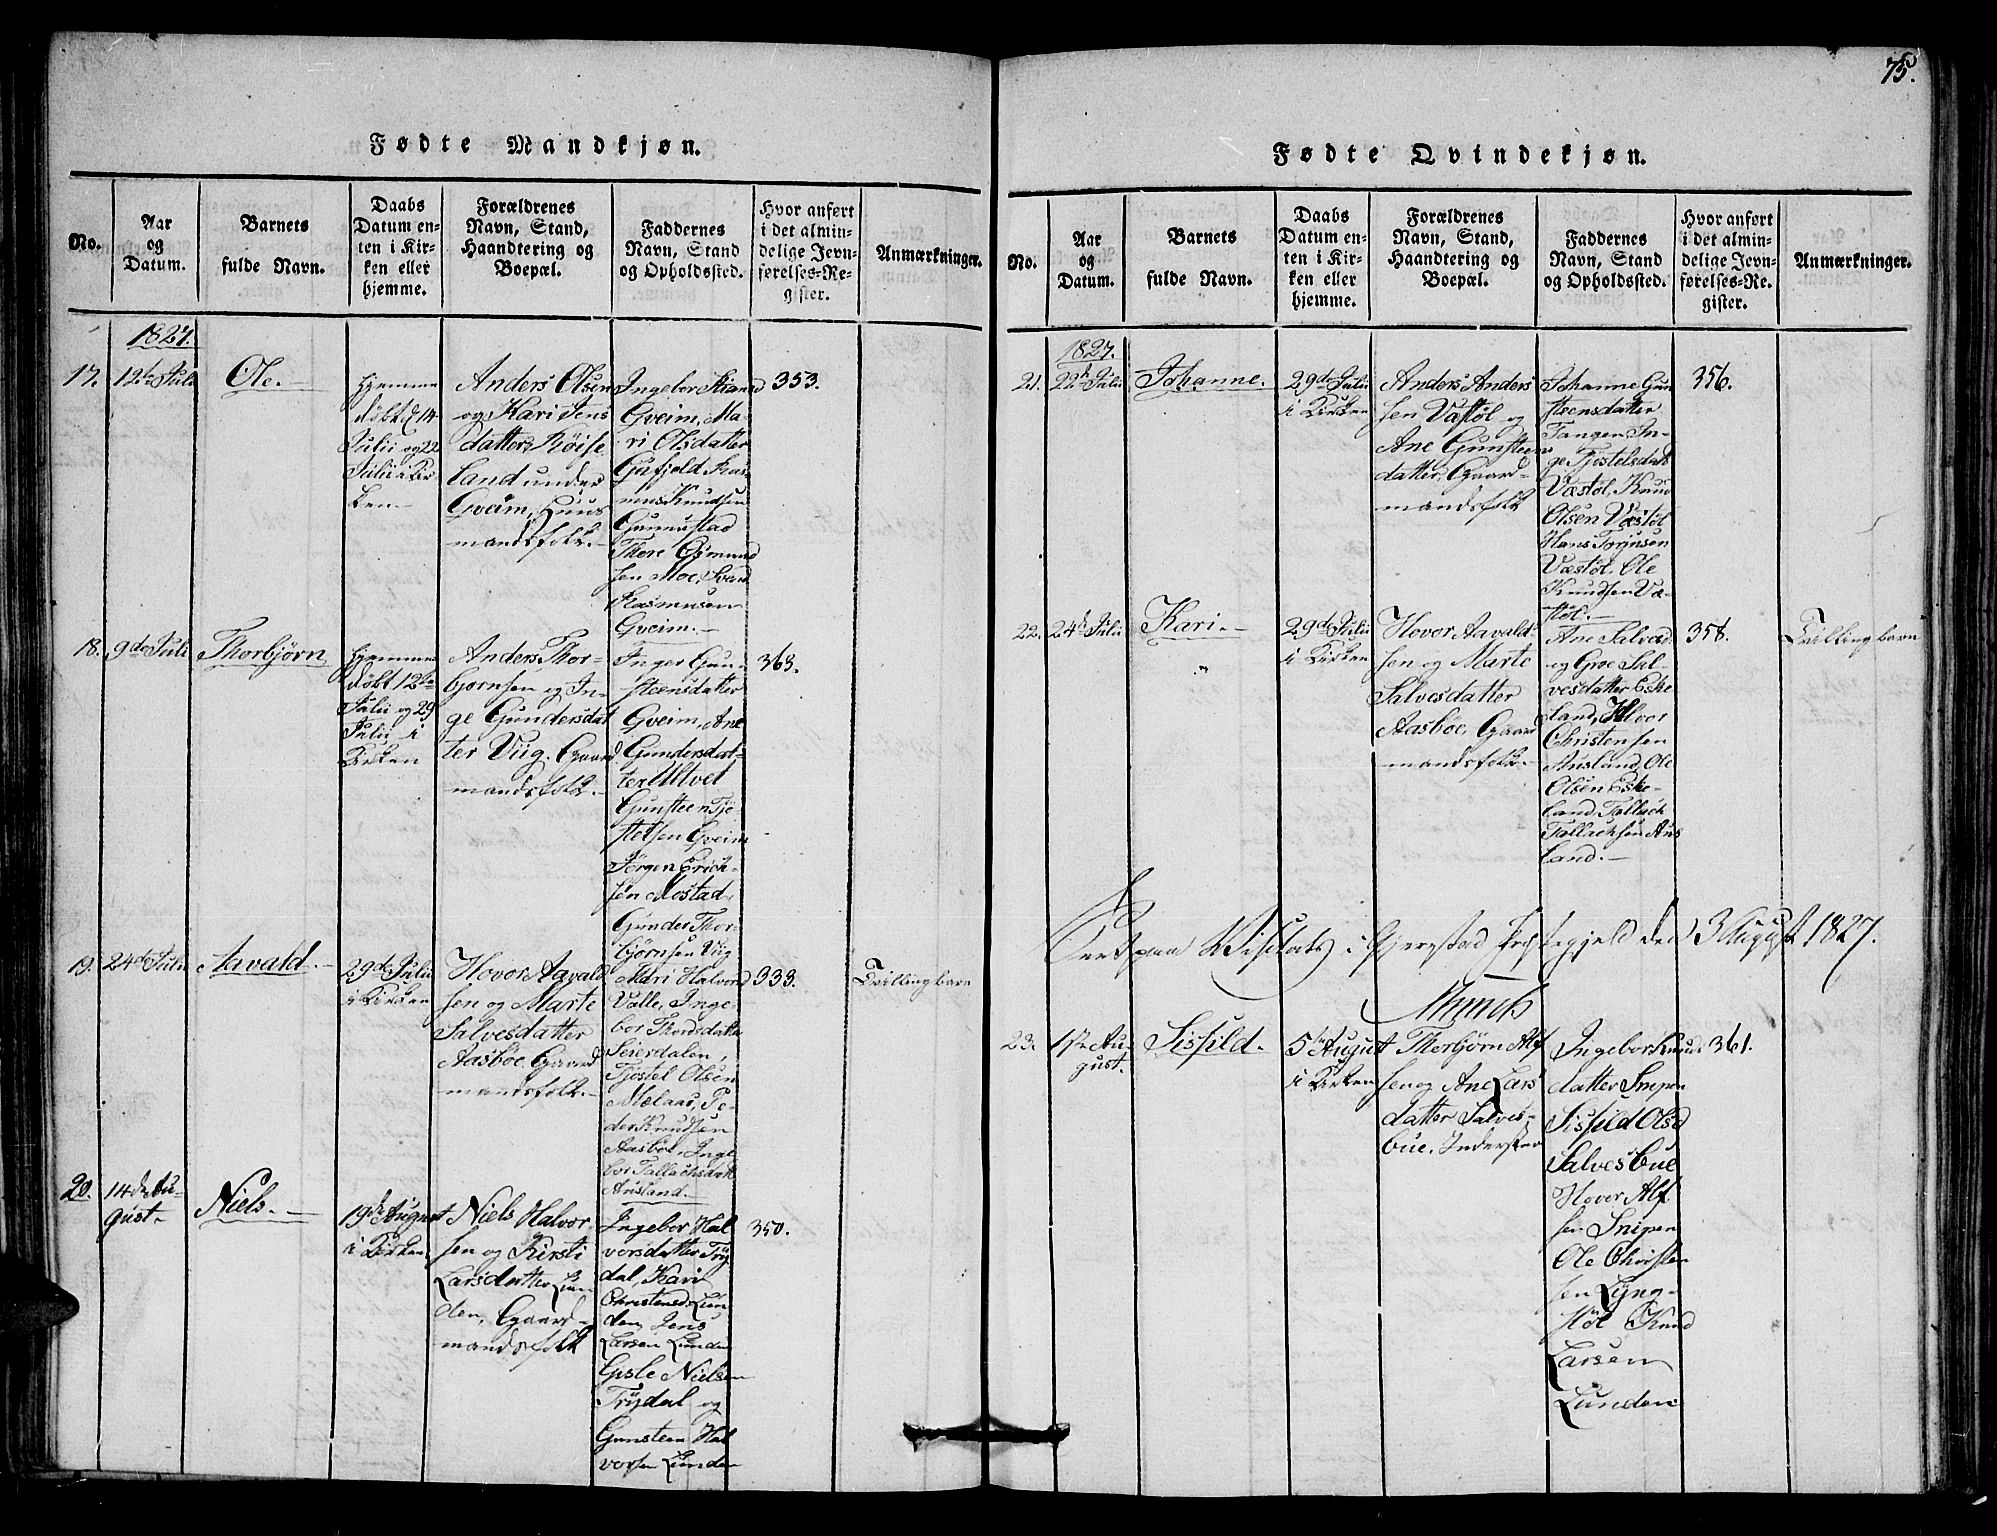 Fødte Mandkjøn.
No.
Aar
og
Datum.
Barnets
fulde Navn.
Daabs
Datum en-
ten i Kir-
ken eller
hjemme.
Forældrenes
Navn, Stand,
Haandtering og
Boepæl.
Faddernes
Navn, Stand
og Opholdssted.
Hvor anført
i det almin-
delige Jevn-
førelses-Re-
gister.
Anmærkninger.
1827.
17.
12te Julii
Ole.
Hjemme
døbt d 14
Julii og 22
Julii i Kir-
ken
Anders Olsen
og Kari Jens
datter Røise
land under
Gveim, Huus
mandsfolk.
Ingebor
Gveim, Ma-
ri Olsdatter
Ras-
mus Knudsen
Gunnustad
Thore Osmund
sen Moe,
Rasmusen
Gveim.
353.
18.
9de Julii
Thorbjørn
Hjemme
døbt 12te
Julii og 29
Julii i
Kirken
Anders Thor-
bjørnsen og In-
ge Gundersdat
ter Viig, Gaard
mandsfolk.
Inger Gun-
steensdatter
Gveim, Ane
Gundersdat-
ter Ulvet
Gunsteen Tje-
stelsen Gveim
Jørgen Erich-
sen Mostad,
Gunder Thor-
bjørnsen Viig
363.
19.
24de Julii
Aavald.
29de Julii
i Kirken
Hovor Aavald
sen og Marte
Salvesdatter
Aasboe, Gaard
mandsfolk.
Mari Halvord
Valle, Inge-
bor Thordsdatter
Seierdalen,
Tjostel Olsen
Mælaas, Pe-
der Knudsen
Aasboe, Inge
bor Tallachsdatt
Ausland.
333.
Tvillingbarn
20.
14de Au-
gust.
Niels.
19de August
i Kirken
Niels Halvor
sen og Kirsti
Larsdatter Lun
den, Gaard-
mandsfolk
Ingebor Hal
vorsdatter Try
dal, Kari
Christensd. Lun
den, Jens
Larsen Lunden
Gisle Nielsen
Trydal og
Gunsteen Hal
vorsen Lunden
350.
75.
Fødte Qvindekjøn.
No.
Aar
og
Datum.
Barnets
fulde Navn.
Daabs
Datum en-
ten i Kir-
ken eller
hjemme.
Forældrenes
Navn, Stand,
Haandtering og
Boepæl.
Faddernes
Navn, Stand
og Opholdssted.
Hvor anført
i det almin-
delige Jevn-
førelses-Re-
gister.
Anmærkninger.
1827.
21.
22de Julii
Johanne.
29de Julii
i Kirken
Anders Anders
sen Vastøl og
Ane Gunsteens
datter, Gaard-
mandsfolk
Johanne Gun
steensdatter
Tangen In-
ge Tjostelsdatt
Væstøl, Knud
Olsen Væstøl
Hans Torjusen
Væstøl, Ole
Knudsen Væ-
støl.
356.
22.
24de Julii
Kari.
29de Julii
i Kirken
Hovor Aavald-
sen og Marte
Salvesdatter
Aasboe, Gaard
mandsfolk.
Ane Salvesd
og Groe Sal-
vesdatter Eske
land, Halvor
Christensen
Ausland, Ole
Olsen Eske-
land, Tallach
Tallachsen Aus
land.
358.
Tvillingbarn
Seet paa Visitats i Gjerrestad Præstegjeld den 3 August 1827.
Munch
23.
1ste Au-
gust.
Sisfild.
5te August
i Kirken
Thorbjørn Alf
sen og Ane Lars
datter Salves-
bue, Inderster
Ingebor Knuds
datter Snipen
Sisfild Olsd
Salvesbue
Hover Alf
sen Snipen
Ole Christen
sen Lyng-
støl Knud
Larsen
Lunden
361.